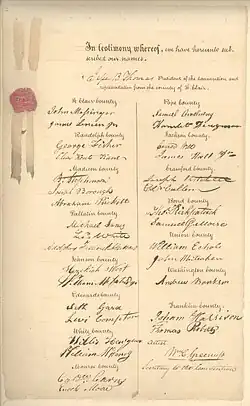 In testimony whereof, we have hereunto sub-
scribed our names.
B Thomas President of the convention and
representative from the county of St. Clair.
St Clair county
John Messinger
James Lemen jr
Randolph County
George Fisher
Elias Kent Kane
Madison County
B. Stephenson
Joseph Borough
Abraham Prickett
Gallatin County
Michael Jones
Leo White
Adolphus Frederick Hubbard
Johnson County
Hezekiah West
William McFatridge
Edwards County
Seth Gard
Levi Compton
White County
Willis Hargrave
William McHenry
Monroe County
Caldwell Cairns
Enoch Moore
Pope County
Samuel Omelveny
Hamlet Ferguson
Jackson County
Conrad Will
James Hall Jr
Crawford County
Joseph Kitchell
Ed N Cullom
Bond County
Thos Kirkpatrick
Samuel G Morse
Union County
William Echols
John Whiteaker
Washington County
Andrew Bankson
Franklin County
Isham Harrison
Thomas Roberts
attest
Wm C. Greenup
Secretary to the Convention